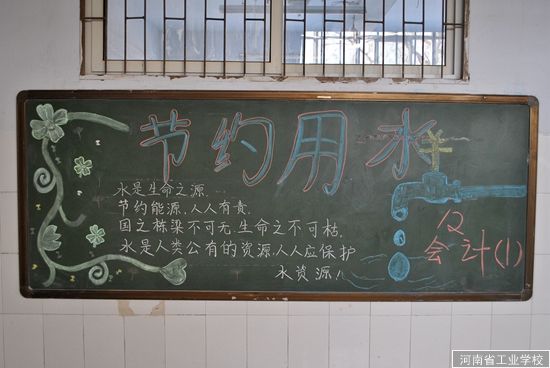 节约用水
水是生命之源,
节约能源,人人有责,
国之栋梁不可无,生命之不可枯,
水是人类公有的资源,人人应保护
水资源!
12
会计(1)
河南省工业学校